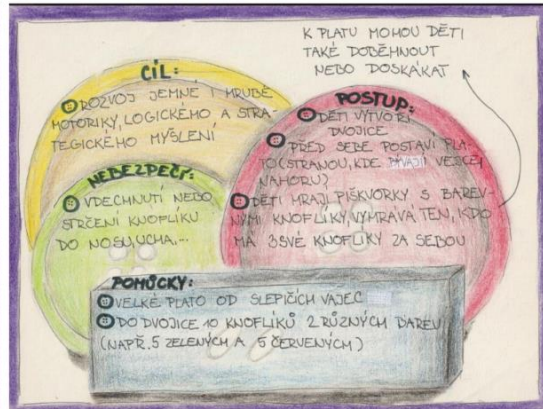 K PLATU MOHOU DĚTI
TAKÉ DOBĚHNOUT
NEBO DOSKÁKAT
CÍL:
ROZVOJ JEMNÉ I HRUBÉ
MOTORIKY, LOGICKÉHO A STRA-
TEGICKÉHO MYŠLENÍ
NEBEZPEČÍ:
VDECHNUTÍ NEBO
STRČENÍ KNOFLÍKU
DO NOSU, UCHA,...
POSTUP:
DĚTI VYTVOŘÍ
DVOJICE
PŘED SEBE POSTAVÍ PLA-
TO (STRANOU, KDE BÝVAJÍ VEJCE,
NAHORU)
DĚTI HRAJÍ PIŠKVORKY S BAREV-
NÝMI KNOFLÍKY, VYHRÁVÁ TEN, KDO
MÁ 3 SVÉ KNOFLÍKY ZA SEBOU
POMŮCKY:
VELKÉ PLATO OD SLEPIČÍCH VAJEC
DO DVOJICE 10 KNOFLÍKŮ 2 RŮZNÝCH BAREV
(NAPŘ. 5 ZELENÝCH A 5 ČERVENÝCH)